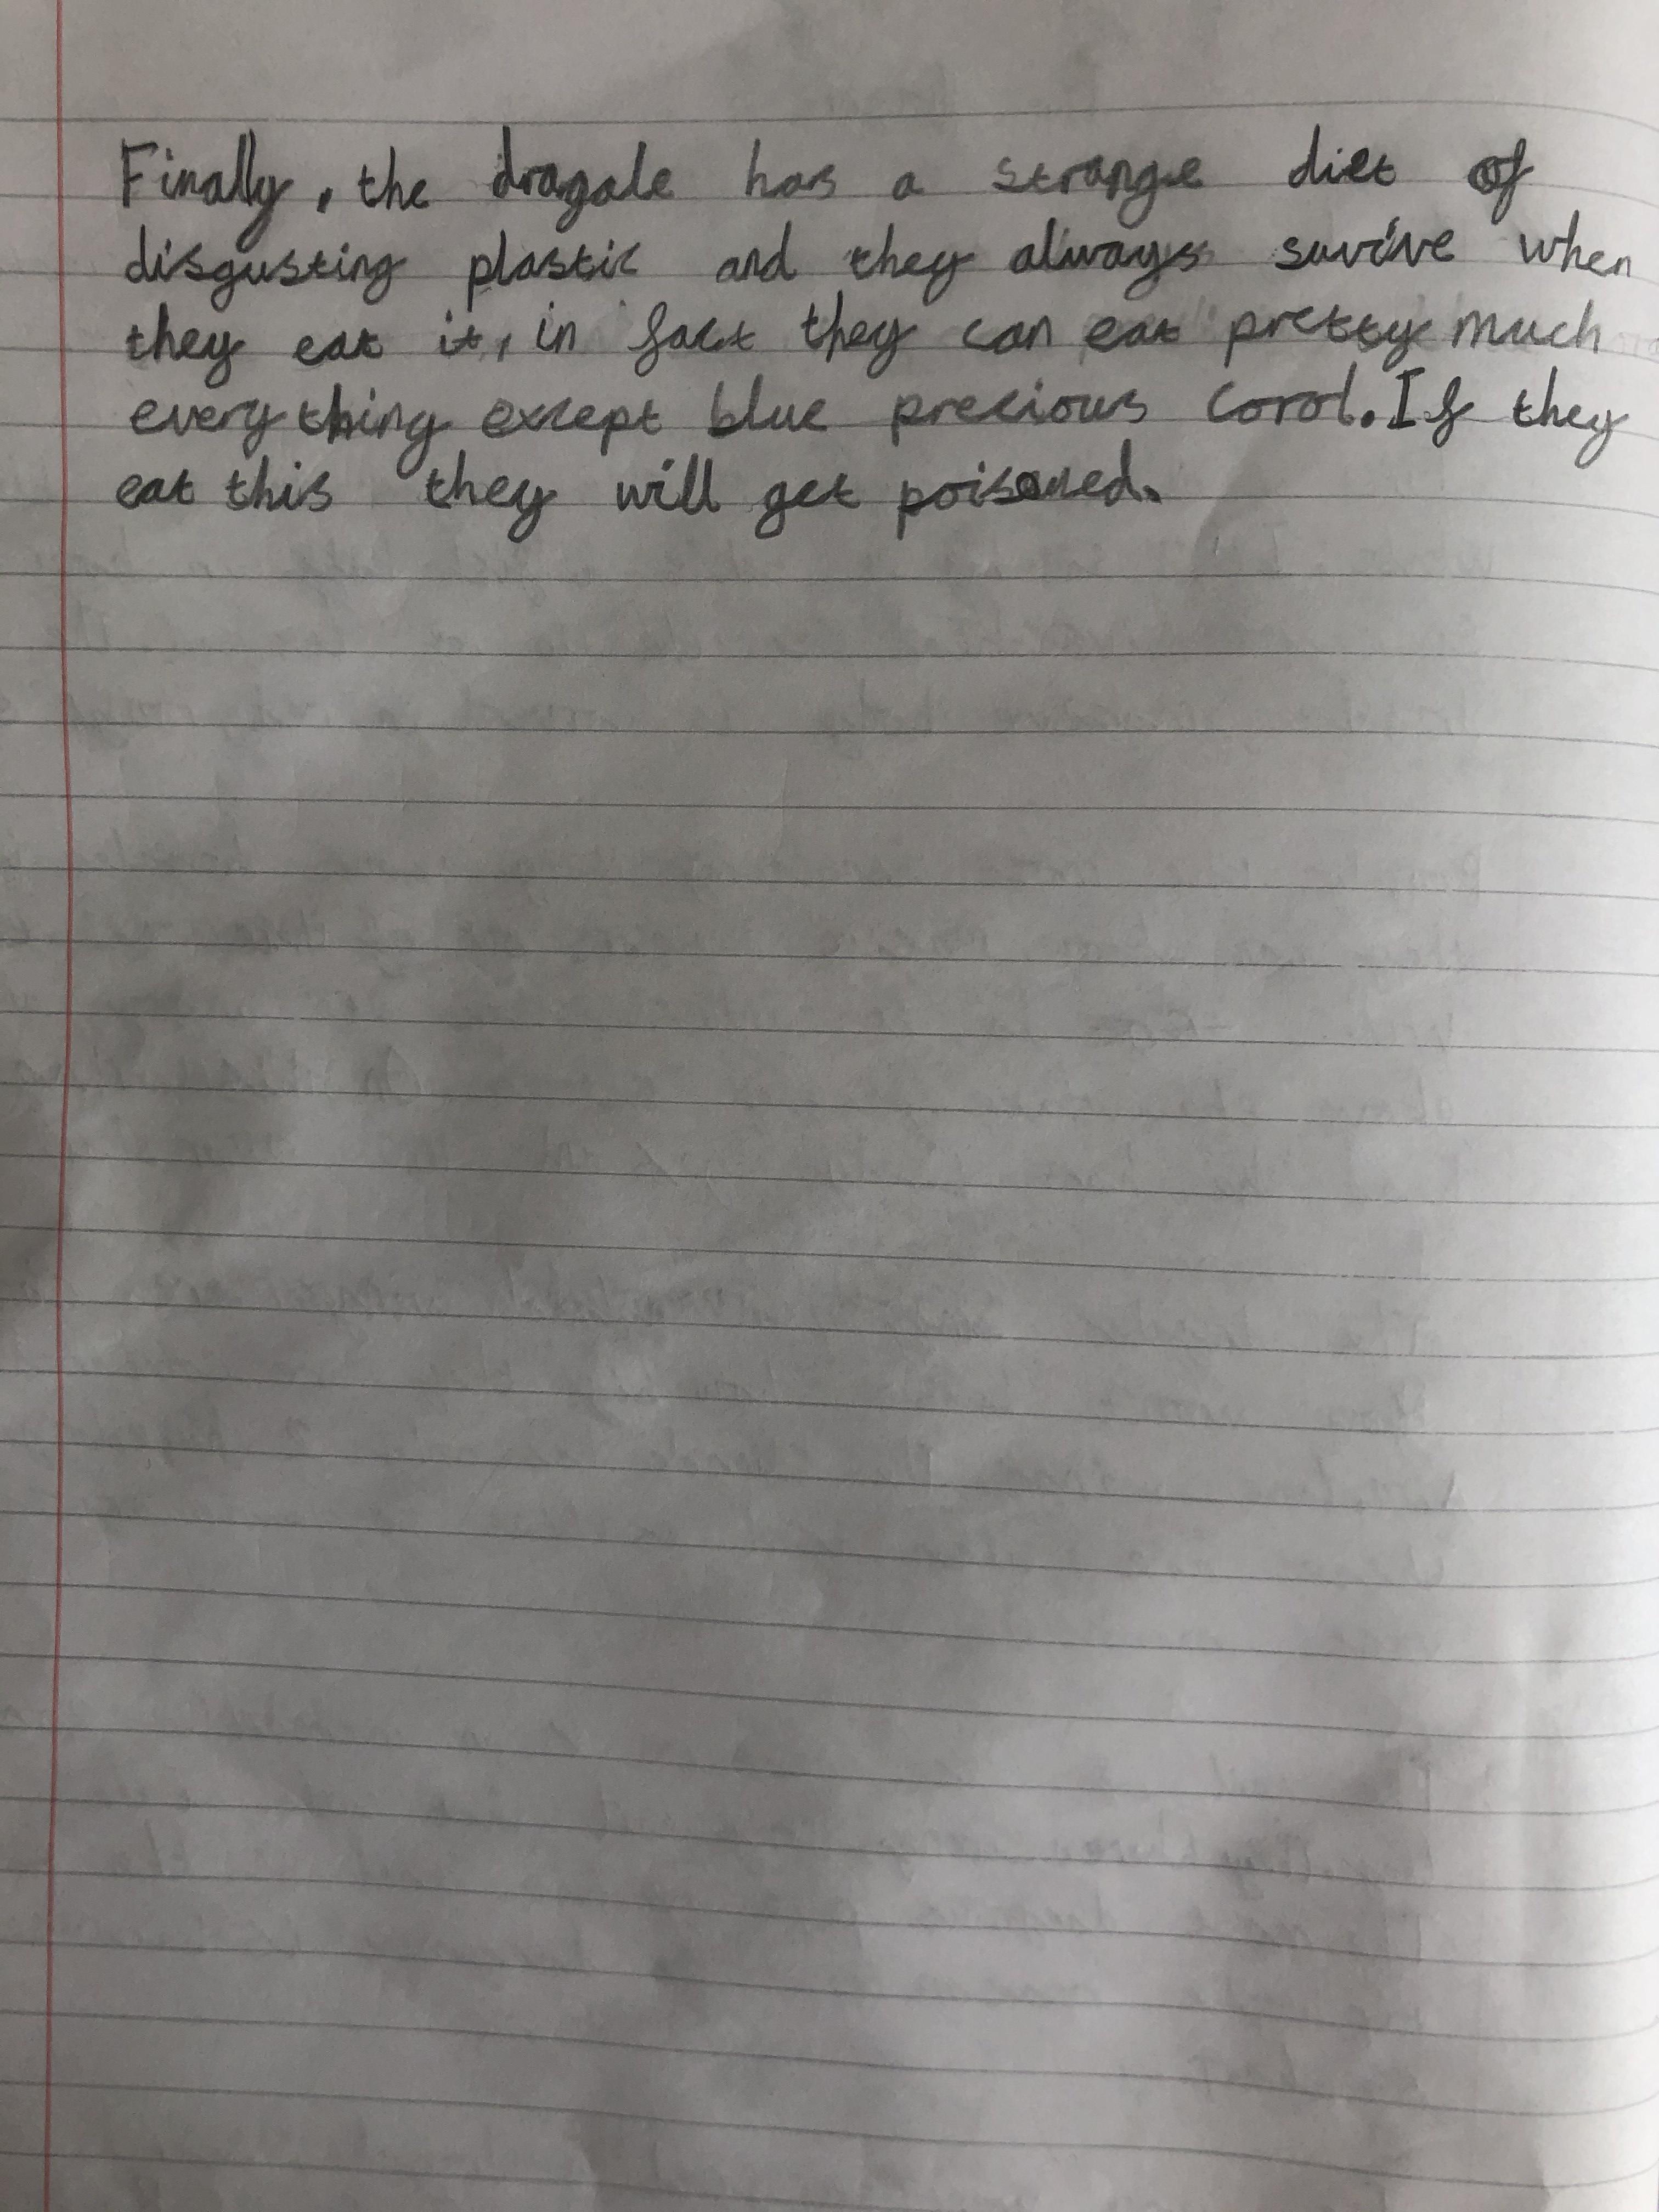 Finally, the dragale has a strange diet of
disgusting plastic and they always suvive when
they eat it, in fact they can eat pretty much
everything except blue precious corol. If they
eat this they will get poisoned.